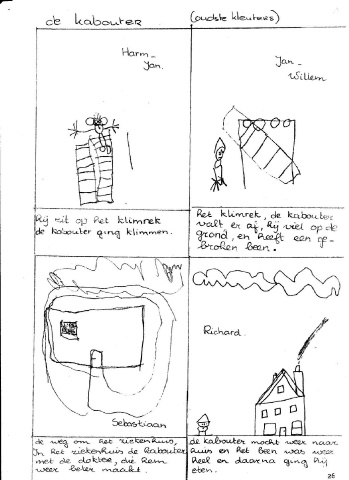 de kabouter (oudste kleuters)
Harm-
Jan.
Jan-
Willem
Hij zit op het klimrek
de kabouter ging klimmen.
het klimrek, de kabouter
valt er af, hij viel op de
grond, en heeft een ge-
broken been.
Sebastiaan
Richard.
de weg om het ziekenhuis,
In het ziekenhuis de kabouter
met de dokter, die hem
weer beter maakt.
de kabouter mocht weer naar
huis en het been was weer
heel en daarna ging hij
eten.